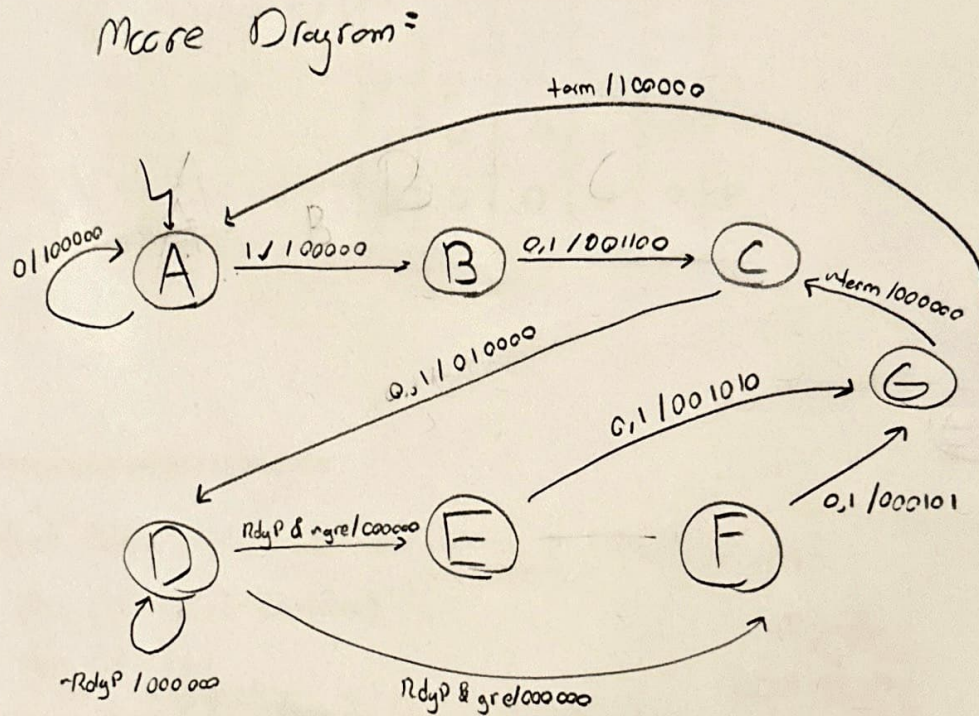 Moore Diagram:
term / 100000
0 / 100000
A
1 / 100000
B
0,1 / 001100
C
~term / 000000
0,1 / 010000
0,1 / 001010
G
D
RdyP & ~gre / 000000
E
F
0,1 / 000101
~RdyP / 000000
RdyP & gre / 000000